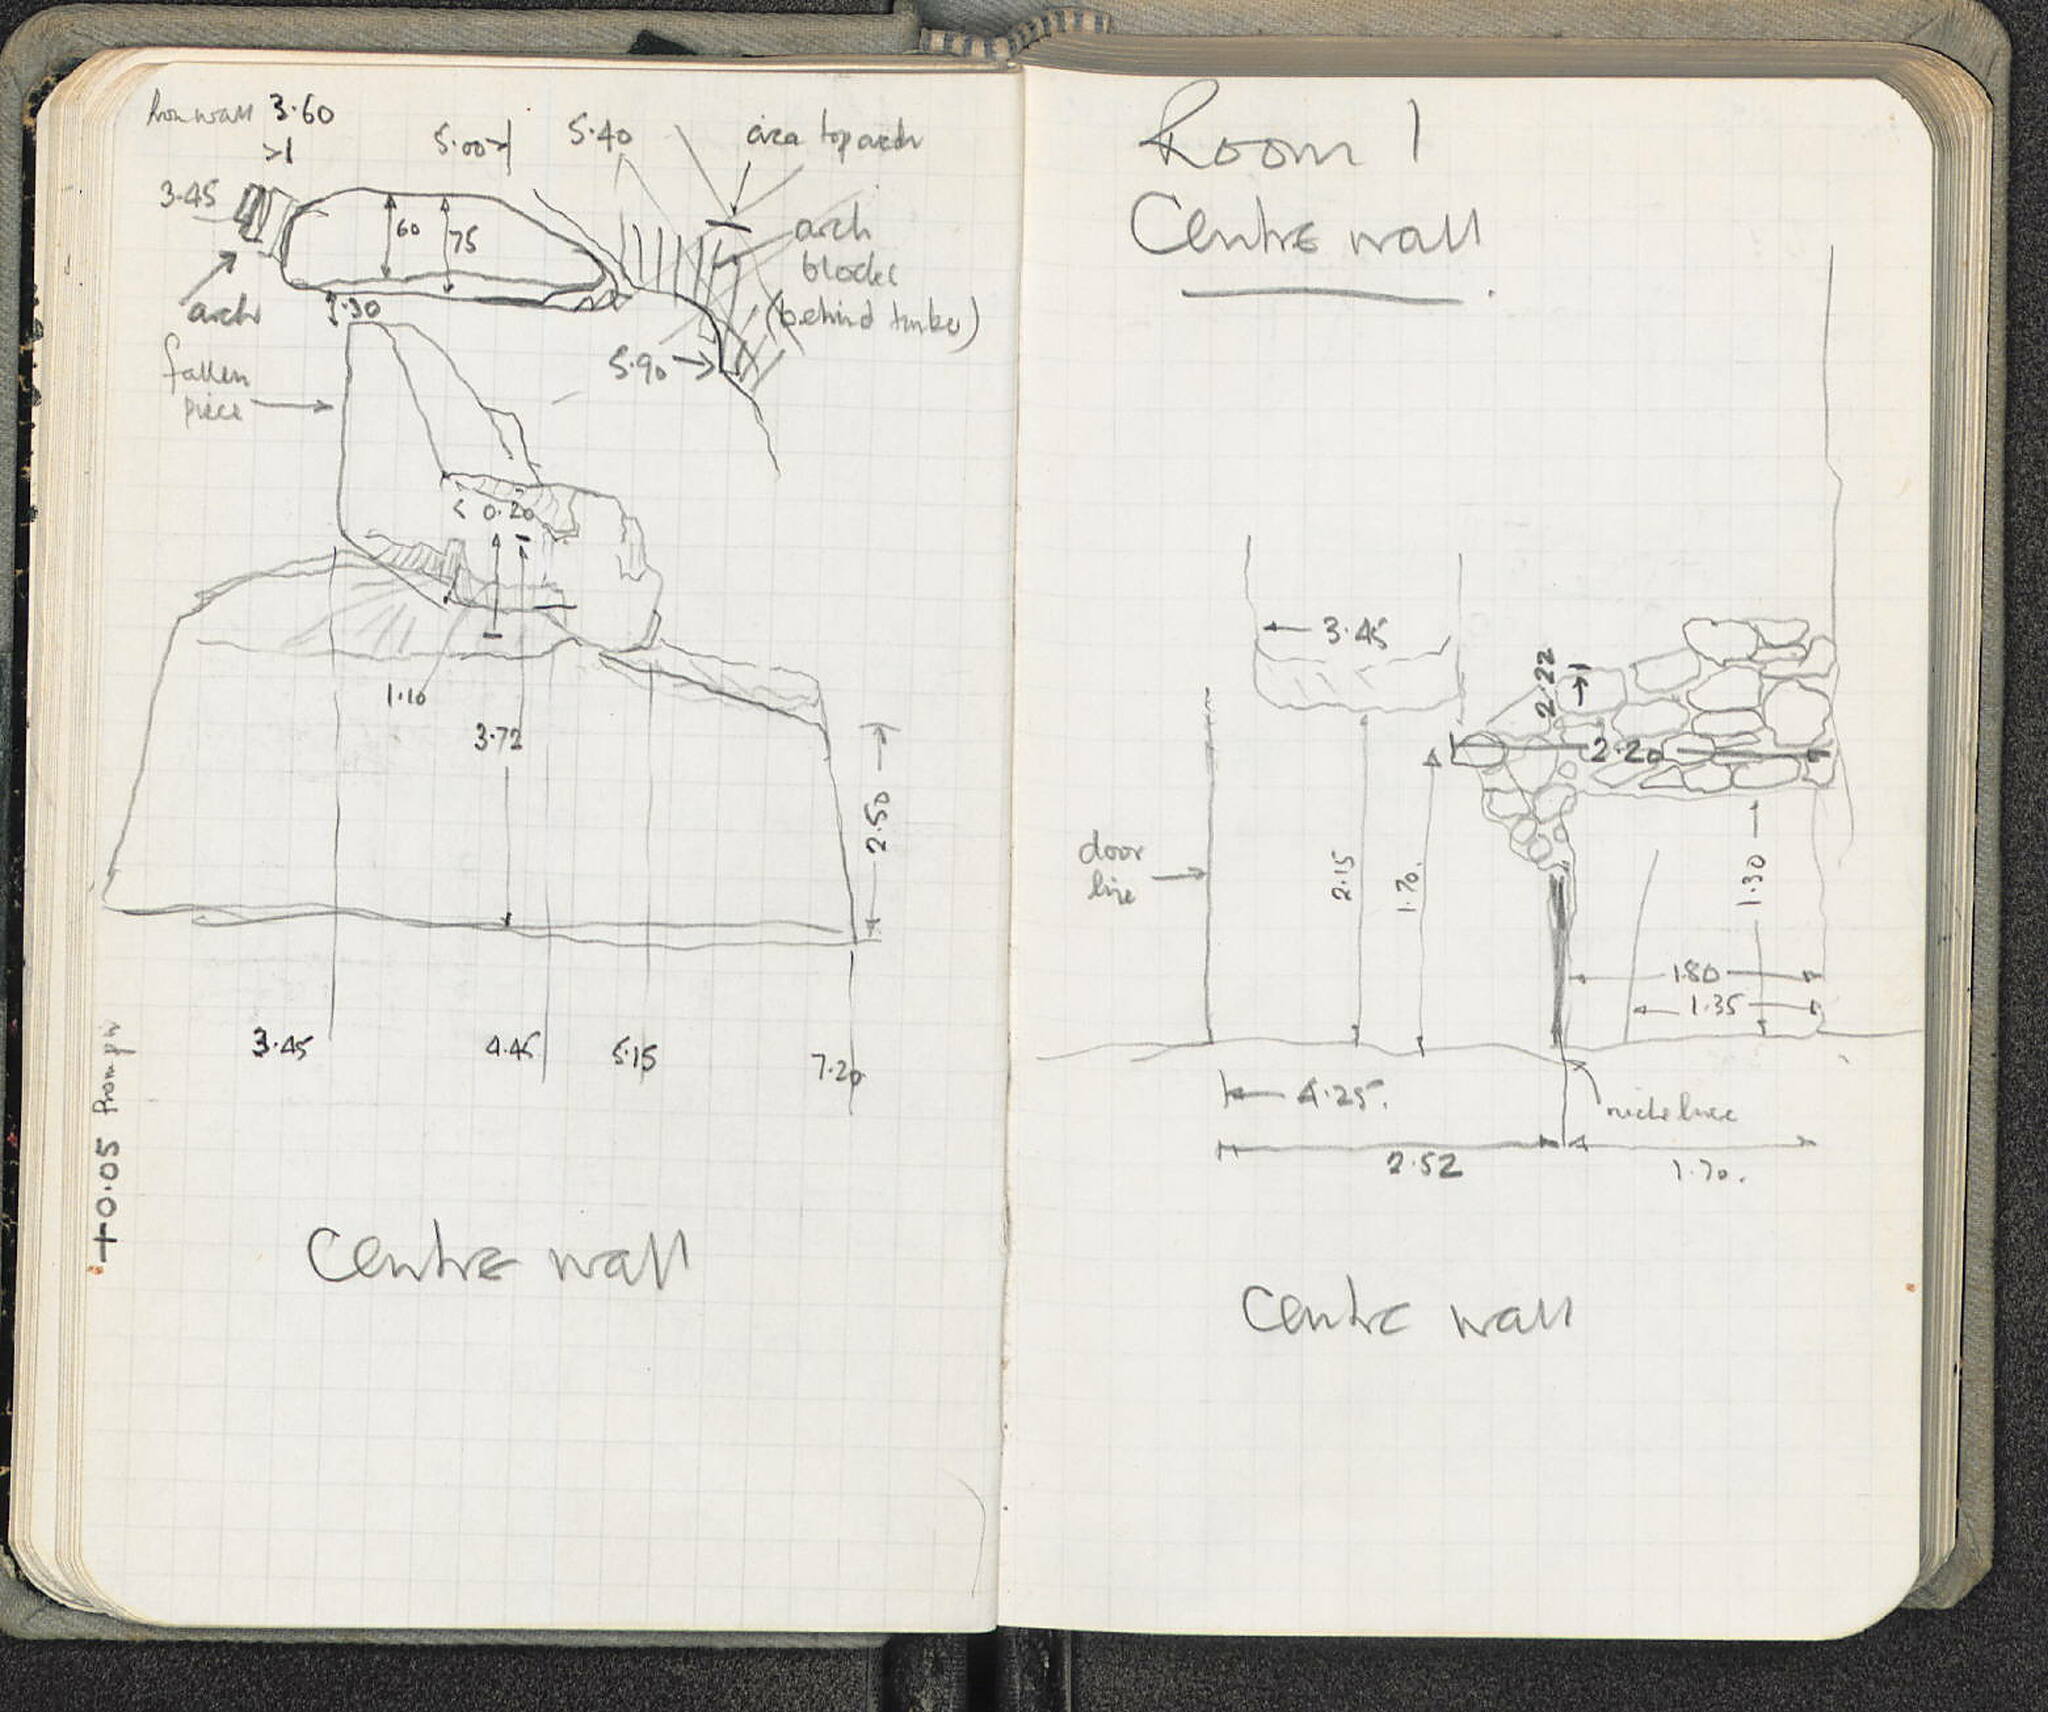 3.60
5.00
5.40
circa top arch
3.45
60
75
arch
blocks
(behind timber)
arch
3.30
5.90
fallen
piece
0.20
1.10
3.72
2.50
3.45
4.45
5.15
7.20
+0.05 From
Centre wall
Room 1
Centre wall
3.45
2.22
2.20
door
line
2.15
1.70.
1.30
1.80
1.35
4.25.
niche line
2.52
1.70.
Centre wall